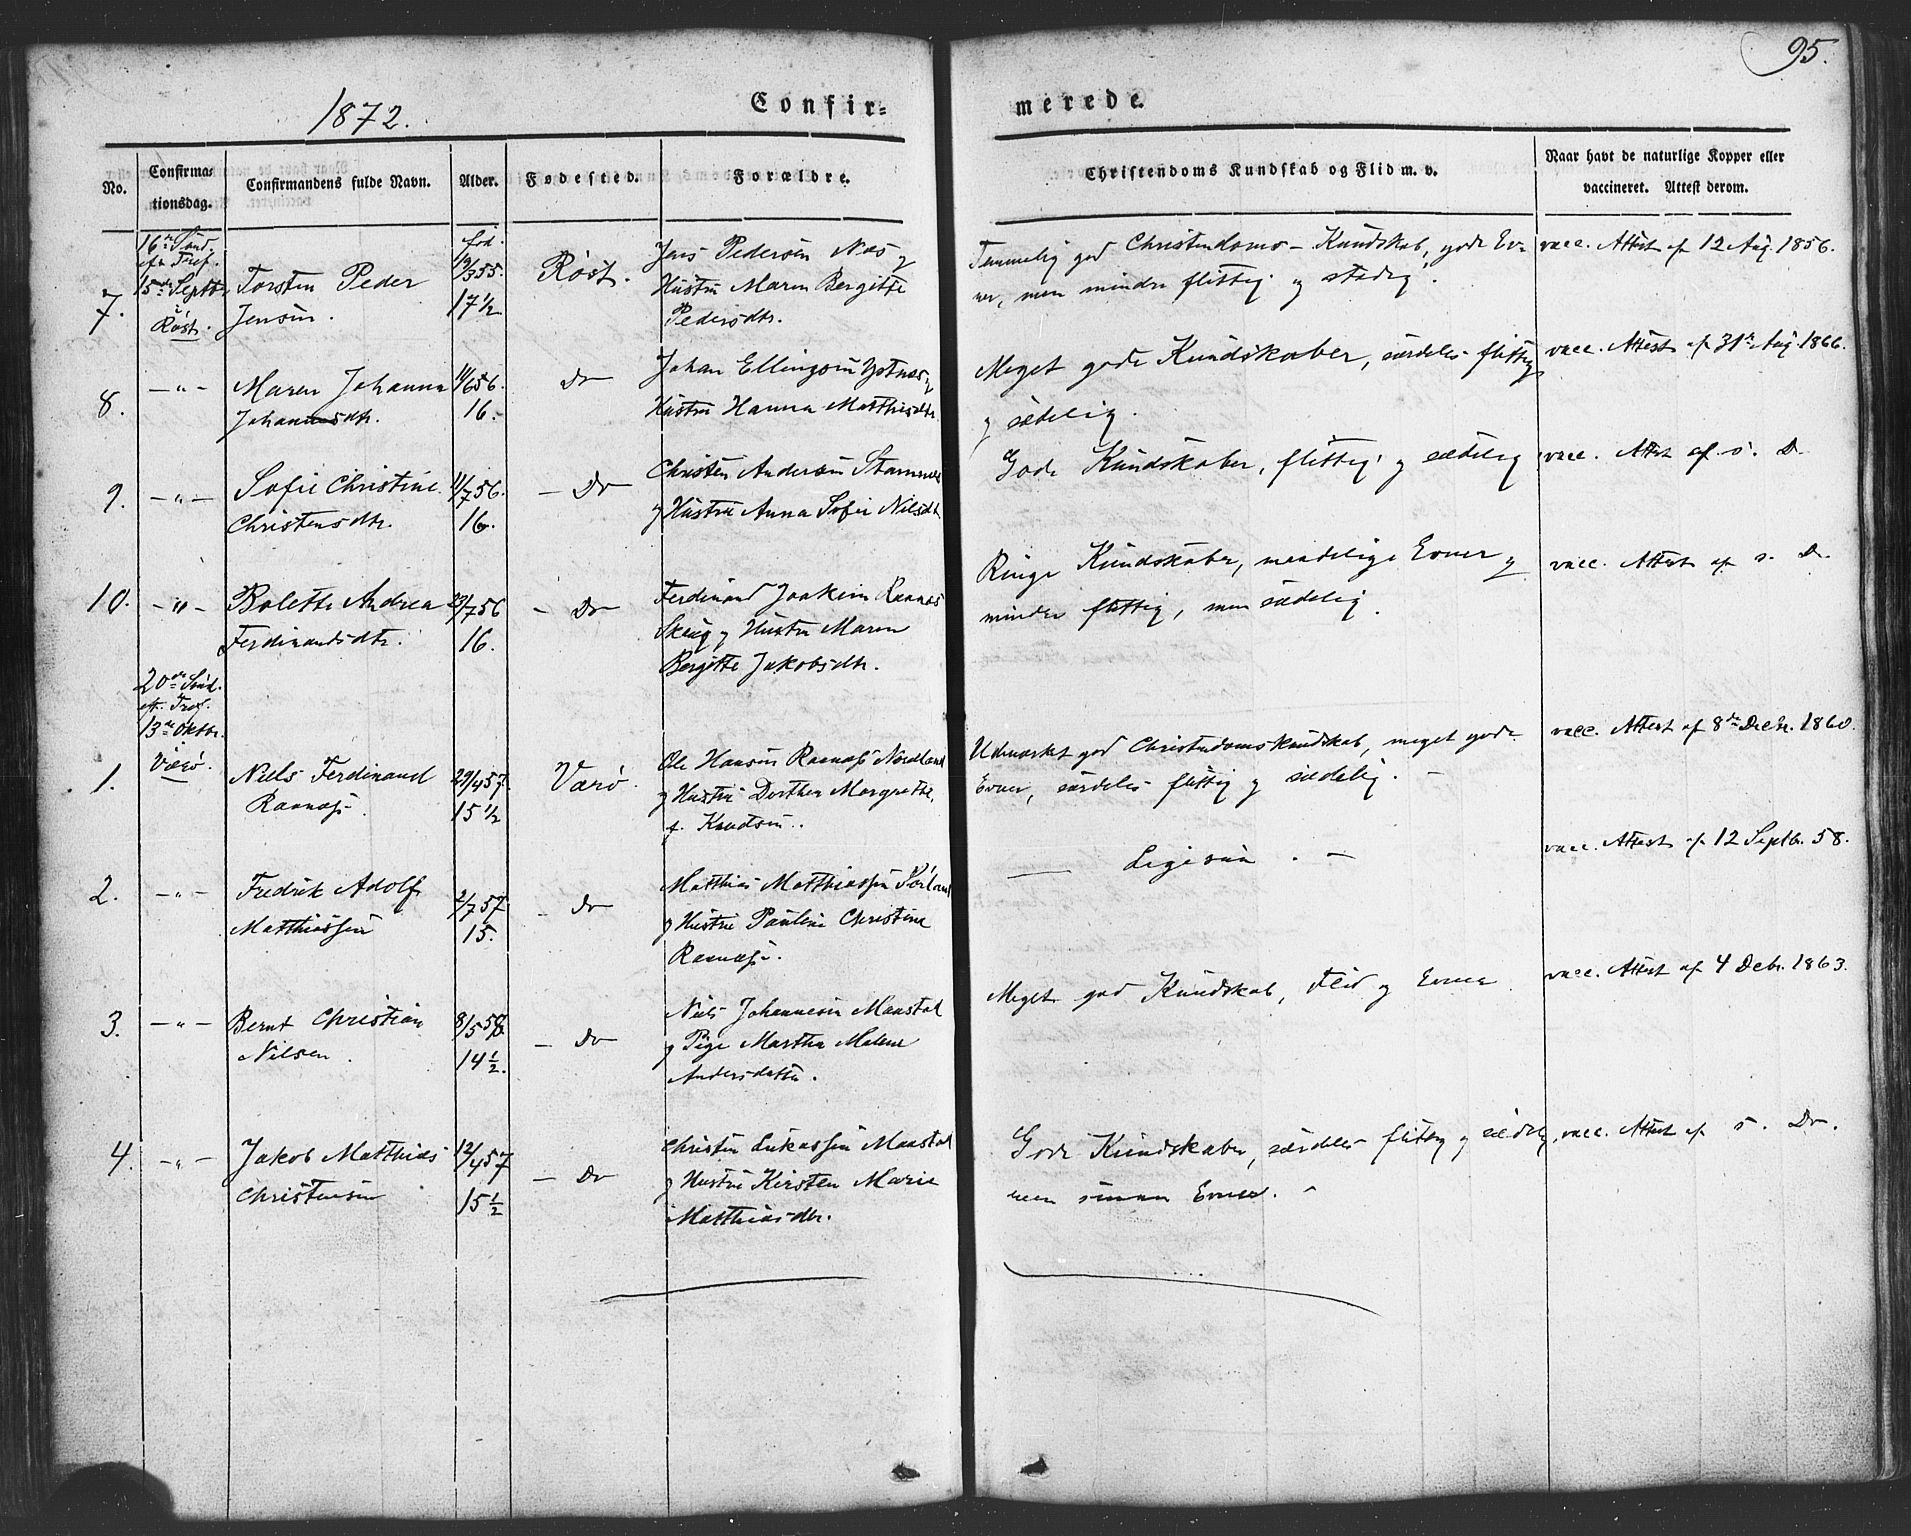 95.
1872.
Confir=
merede.
No.
Confirma-
tionsdag.
Confirmandens fulde Navn.
Alder.
Fødested.
Forældre.
Christendoms Kundskab og Flid m. v.
Naar havt de naturlige Kopper eller
vaccineret. Attest derom.
7.
16de Sönd.
eftr Tref.
15de Septbr
Röst.
Torsten Peder
Jensen.
fød.
3/55.
17 1/2
Röst.
Jens Pedersen Næs og
Hustru Maren Bergitte
Pedersdtr.
Temmelig god Christendoms-Kundskab, gode Ev-
ner, men mindre flittig og stadig.
vacc. Attest af 12 Aug. 1856.
8.
-"-
Maren Johanna
Johansdtr.
11/6 56.
16.
Do
Johan Ellingsen Ystnæs og
Hustru Hanna Matthisdtr
Meget gode Kundskaber, særdeles flittig
og sædelig.
vacc. Attest af 31te Aug 1866.
9.
-"-
Sofie Christine
Christensdtr.
11/7 56.
16.
- Do
Christen Andersen Stamnæs
og Hustru Anna Sofie Nilsdtr
Gode Kundskaber, flittig og sædelig
vacc. Attest af s. D.
10.
-"-
Bolette Andrea
Ferdinandsdtr.
23/7 56
16.
- Do
Ferdinand Joakim Raanæs
og Hustru Maren
Bergitte Jakobsdtr.
Ringe Kundskaber, maadelige Evner og
mindre flittig, men sædelig.
vacc. Attest af s. D.
1.
20de Sönd.
eft. Tref.
13de Oktbr.
Værö.
Niels Ferdinand
Raanæs
29/4 57.
15 1/2
Værö.
Ole Hansen Raanæs Nordland
og Hustru Dorthea Margrethe,
f. Knudsen.
Udmærket god Christendomskundskab, meget gode
Evner, særdeles flittig og sædelig.
vacc. Attest af 8de Decbr. 1860.
2.
-"-
Fredrik Adolf
Matthiassen
2/7 57
15.
- do
Matthias Matthiassen Sörland
og Hustru Pauline Christine
Raanæs.
Ligesaa. -
vacc. Attest af 12 Septbr. 58.
3.
-"-
Bernt Christian
Nilsen.
8/5 58.
14 1/2.
- Do
Niels Johannesen Maastad
og Pige Martha Malene
Andersdatter.
Meget god Kundskab, Flid og Evner
vacc. Attest af 4 Decbr. 1863.
4.
-"-
Jakob Matthias
Christensen
12/4 57
15 1/2
- Do
Christen Lukassen Maastad
og Hustru Kirsten Marie
Matthiasdtr.
Gode Kundskaber, særdeles flittig og sædelig,
men smaa Evner. -
vacc. Attest af s. Do.